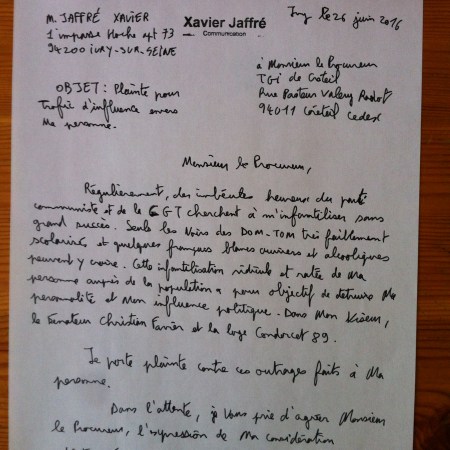 M. JAFFRÉ XAVIER
1 impasse Hoche apt 73
94200 IVRY-SUR-SEINE
Xavier Jaffré
Communication
Ivry le 26 juin 2016
à Monsieur le Procureur
TGI de Créteil
Rue Pasteur Valery Radot
94011 Créteil Cedex
OBJET : Plainte pour
Trafic d'influence envers
Ma personne.
Monsieur le Procureur,
Régulièrement, des imbéciles heureux du parti
communiste et de la CGT cherchent à m'infantiliser sans
grand succès. Seuls les Noirs des DOM-TOM très faiblement
scolarisés et quelques français blancs ouvriers et alcooliques
peuvent y croire. Cette infantilisation ridicule et ratée de Ma
personne auprès de la population a pour objectif de détruire Ma
personnalité et Mon influence politique. Dans Mon Viseur,
le Sénateur Christian Favier et la loge Condorcet 89.
Je porte plainte contre ces outrages faits à Ma
personne.
Dans l'attente, je Vous prie d'agréer Monsieur
le Procureur, l'expression de Ma considération